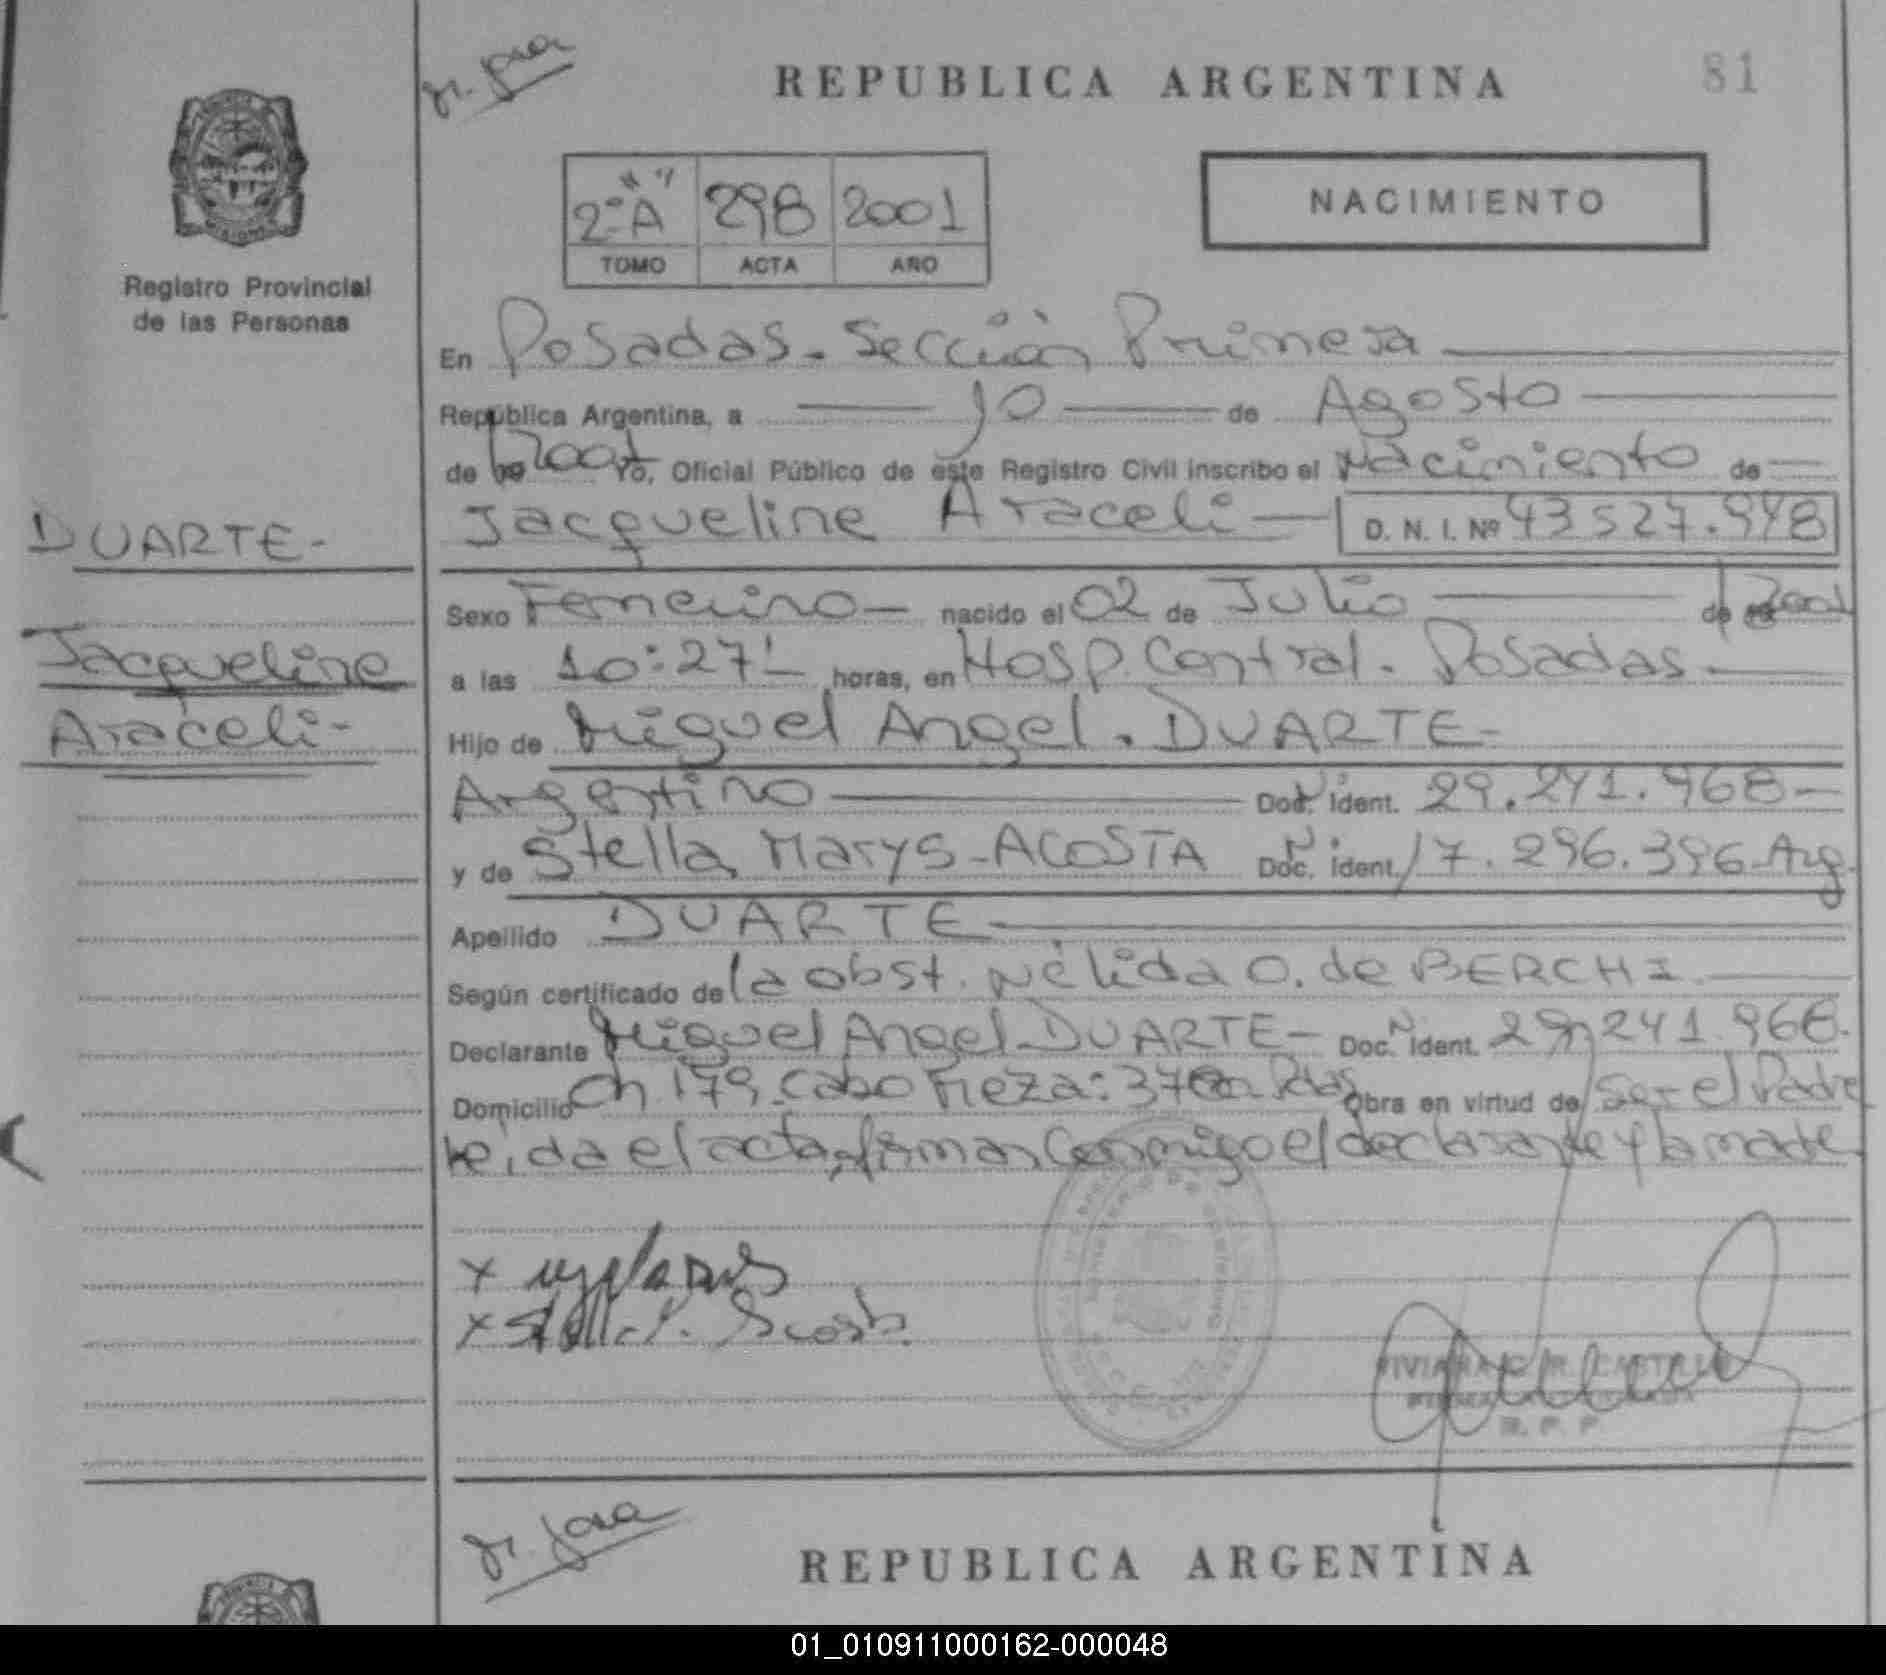 REPUBLICA ARGENTINA
81
2ºA 298 2001
TOMO ACTA AÑO
NACIMIENTO
Registro Provincial
de las Personas
En Posadas - Sección Primera
República Argentina, a 10 de Agosto
de 2001 Yo, Oficial Público de este Registro Civil inscribo el Nacimiento de
Jacqueline Araceli D. N. I. Nº 43527.948
DUARTE-
Jacqueline
Araceli-
Sexo Femenino nacido el 02 de Julio de 2001
a las 10:27'- horas, en Hosp. Central. Posadas
Hijo de Miguel Angel. DUARTE-
Argentino Doc. Ident. 29.241.968-
y de Stella Marys-ACOSTA Doc. Ident. 17.296.396 Arg.
Apellido DUARTE
Según certificado de la obst. Nélida O. de BERCHI
Declarante Miguel Angel DUARTE- Doc. Ident. 29.241.968.
Domicilio Ch. 179. Cabo Meza: Pdas Obra en virtud de ser el Padre
leida el acta, firman conmigo el declarante y la madre
x
x
VIVIANA C. R. CASTILLO
R. P. P.
REPUBLICA ARGENTINA
01_010911000162-000048